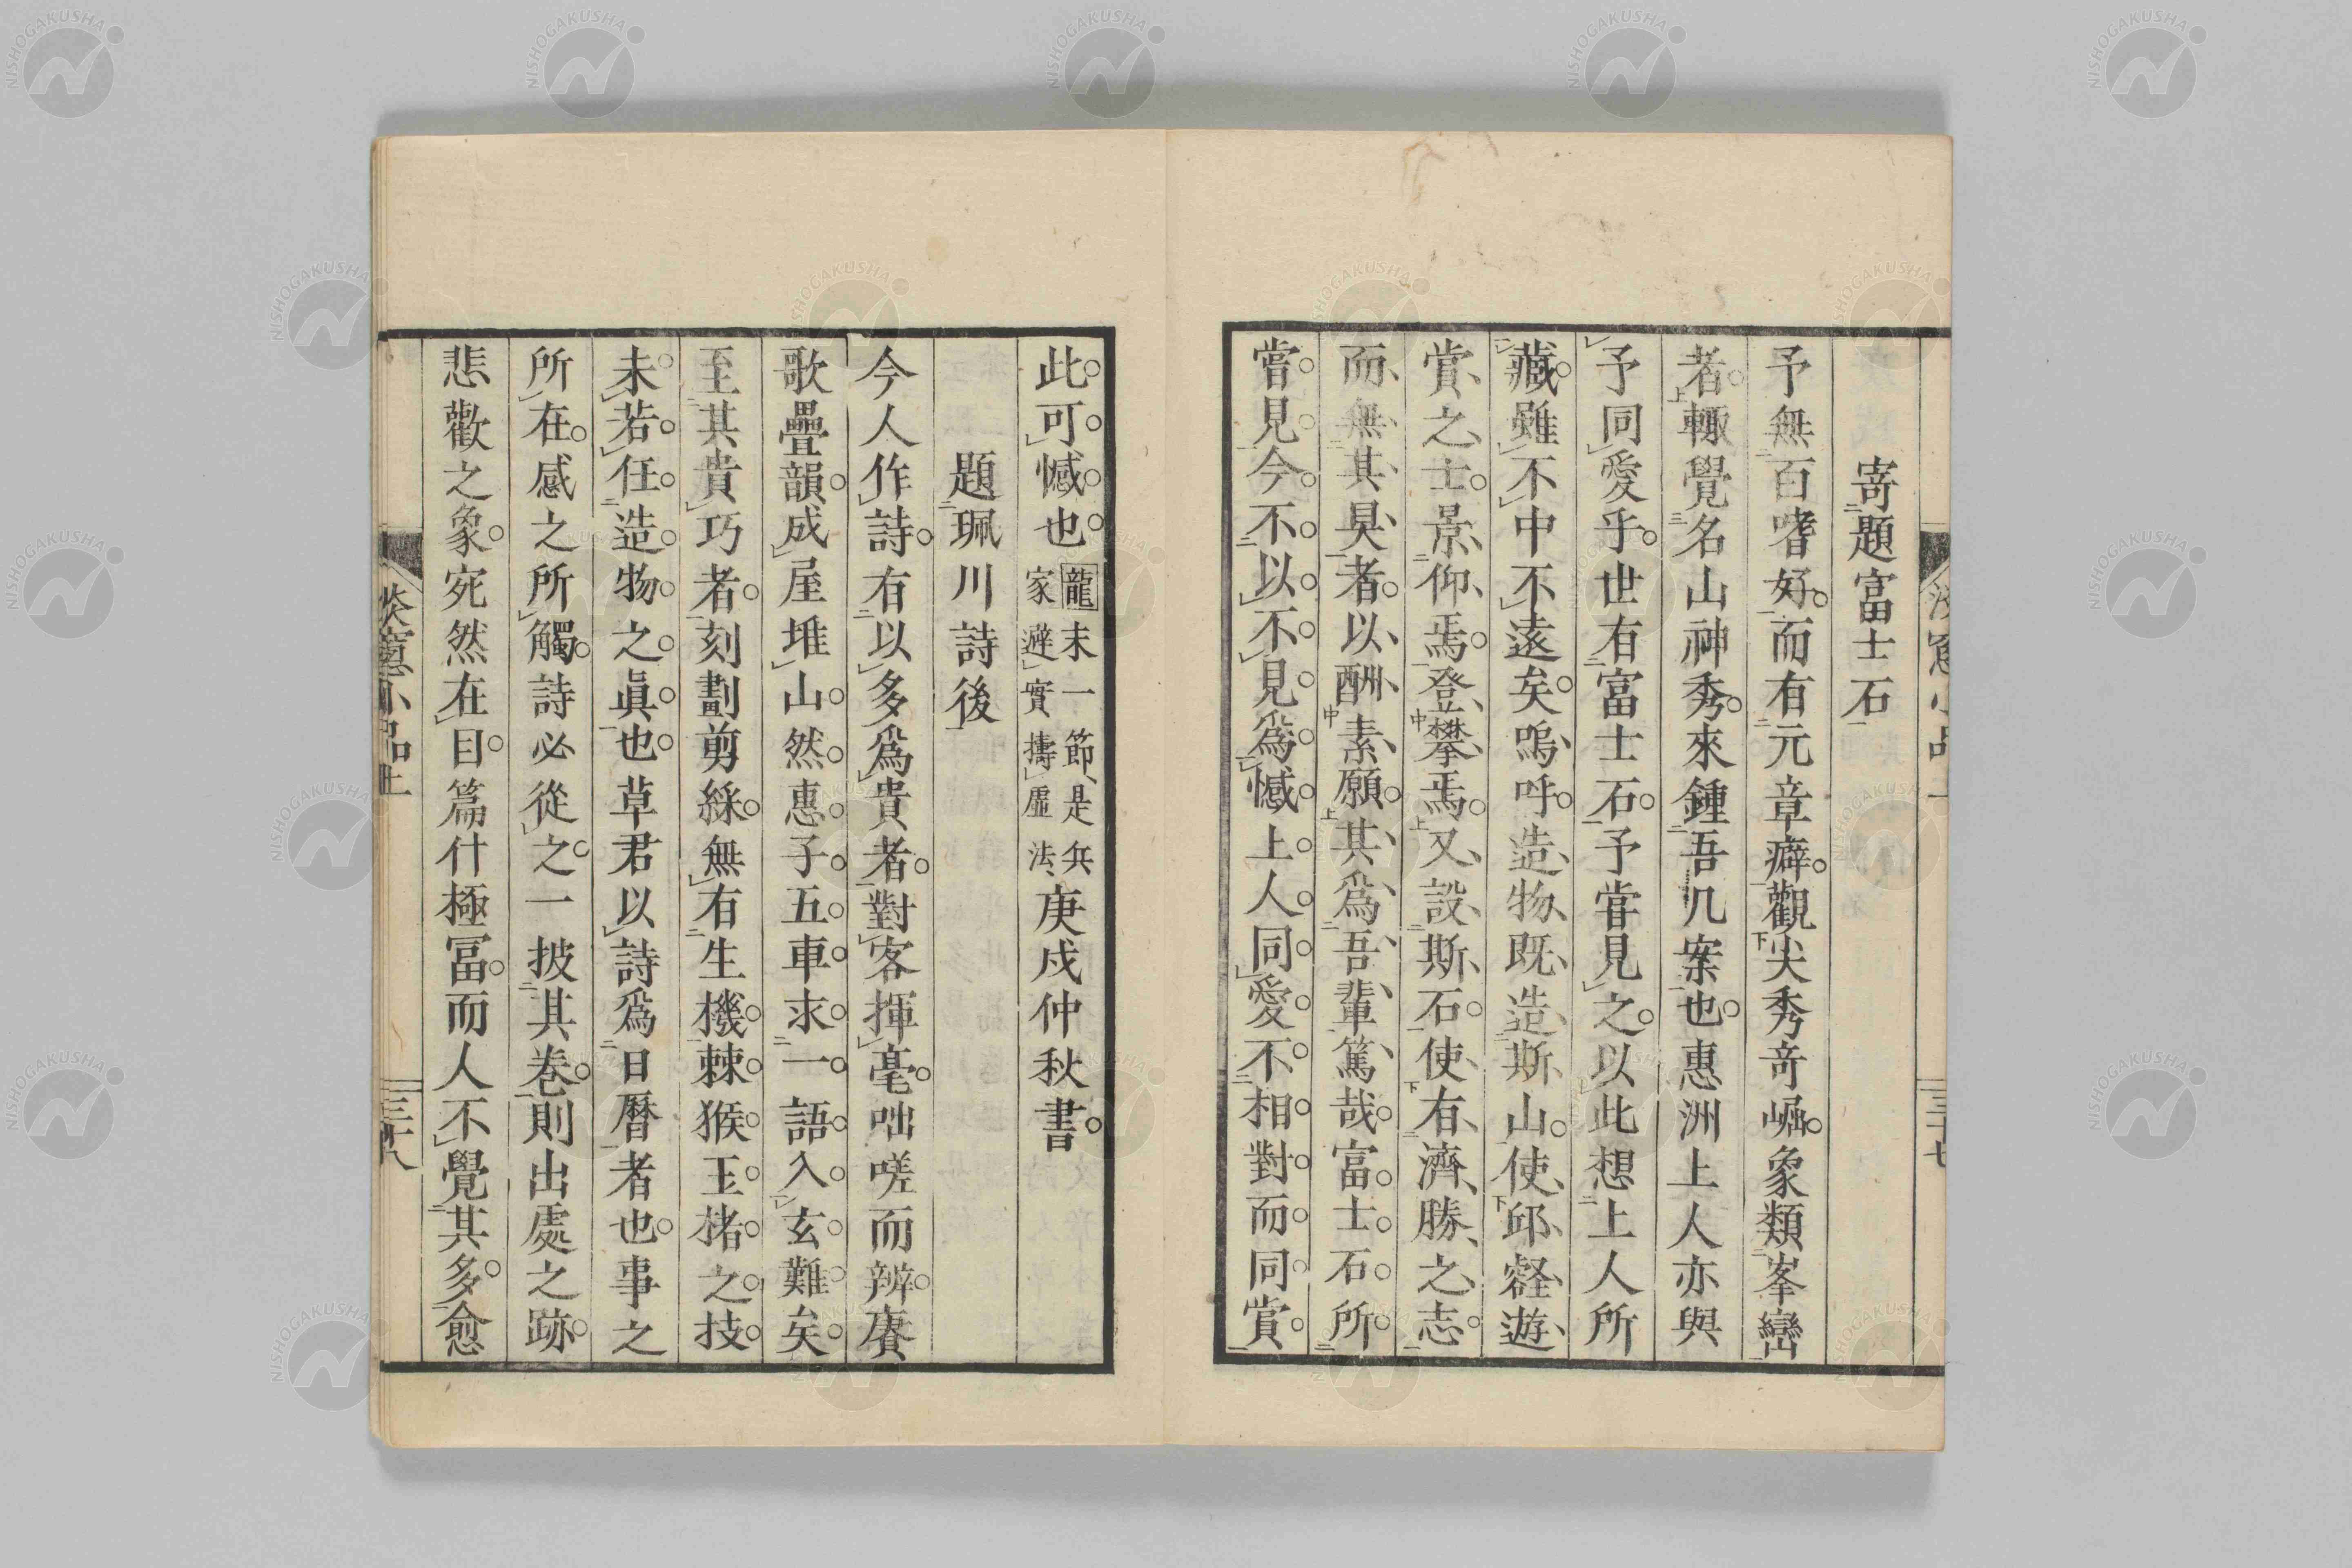 寄題富士石
予無百嗜好而有元章癖觀尖秀奇崛象類峯巒
者輙覺名山神秀來鍾吾几案也惠洲上人亦與
予同愛乎世有富士石予甞見之以此想上人所
藏雖不中不遠矣嗚呼造物既造斯山使邱壑遊
賞之士景仰焉登攀焉又設斯石使有濟勝之志
而無其具者以酬素願其爲吾輩篤哉富士石所
嘗見今不以不見爲憾上人同愛不相對而同賞
三十七
此可憾也龍末一節是兵家避實擣虛法庚戍仲秋書
題珮川詩後
今人作詩有以多爲貴者對客揮毫咄嗟而辨賡
歌疊韻成屋堆山然惠子五車求一語入玄難矣
至其貴巧者刻劃剪綵無有生機棘猴玉楮之技
未若任造物之眞也草君以詩爲日曆者也事之
所在感之所觸詩必從之一披其卷則出處之跡
悲歡之象宛然在目篇什極冨而人不覺其多愈
淡窻小品上
三十八
NISHOGAKUSHA